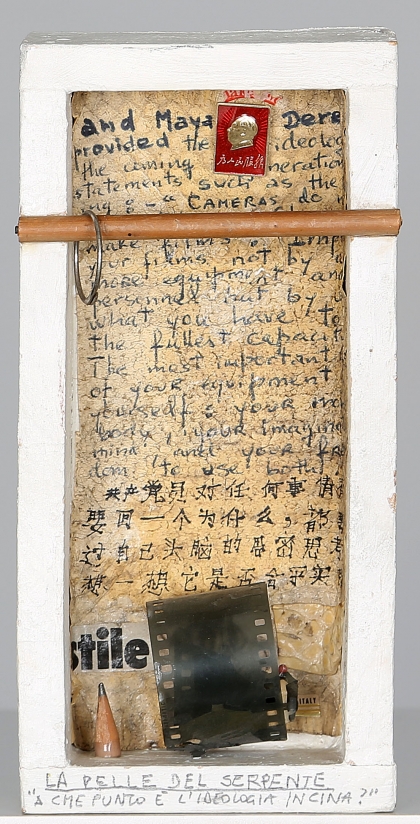 and Maya Dere
provided the ideolog
为人民服务
the coming neration
statements such as the
CAMERAS do
make films Imp
your films not by
more equipment and
personnel but by
what you have to
the fullest capacit
The most important
of your equipment
yourself: your mo
body, your imagin
mind and your fre
dom to use both
共产党员对任何事情
要问一个为什么，都
过自己头脑的周密思考
想一想它是否合乎实
stile
LA PELLE DEL SERPENTE
"A CHE PUNTO È L'IDEOLOGIA IN CINA?"